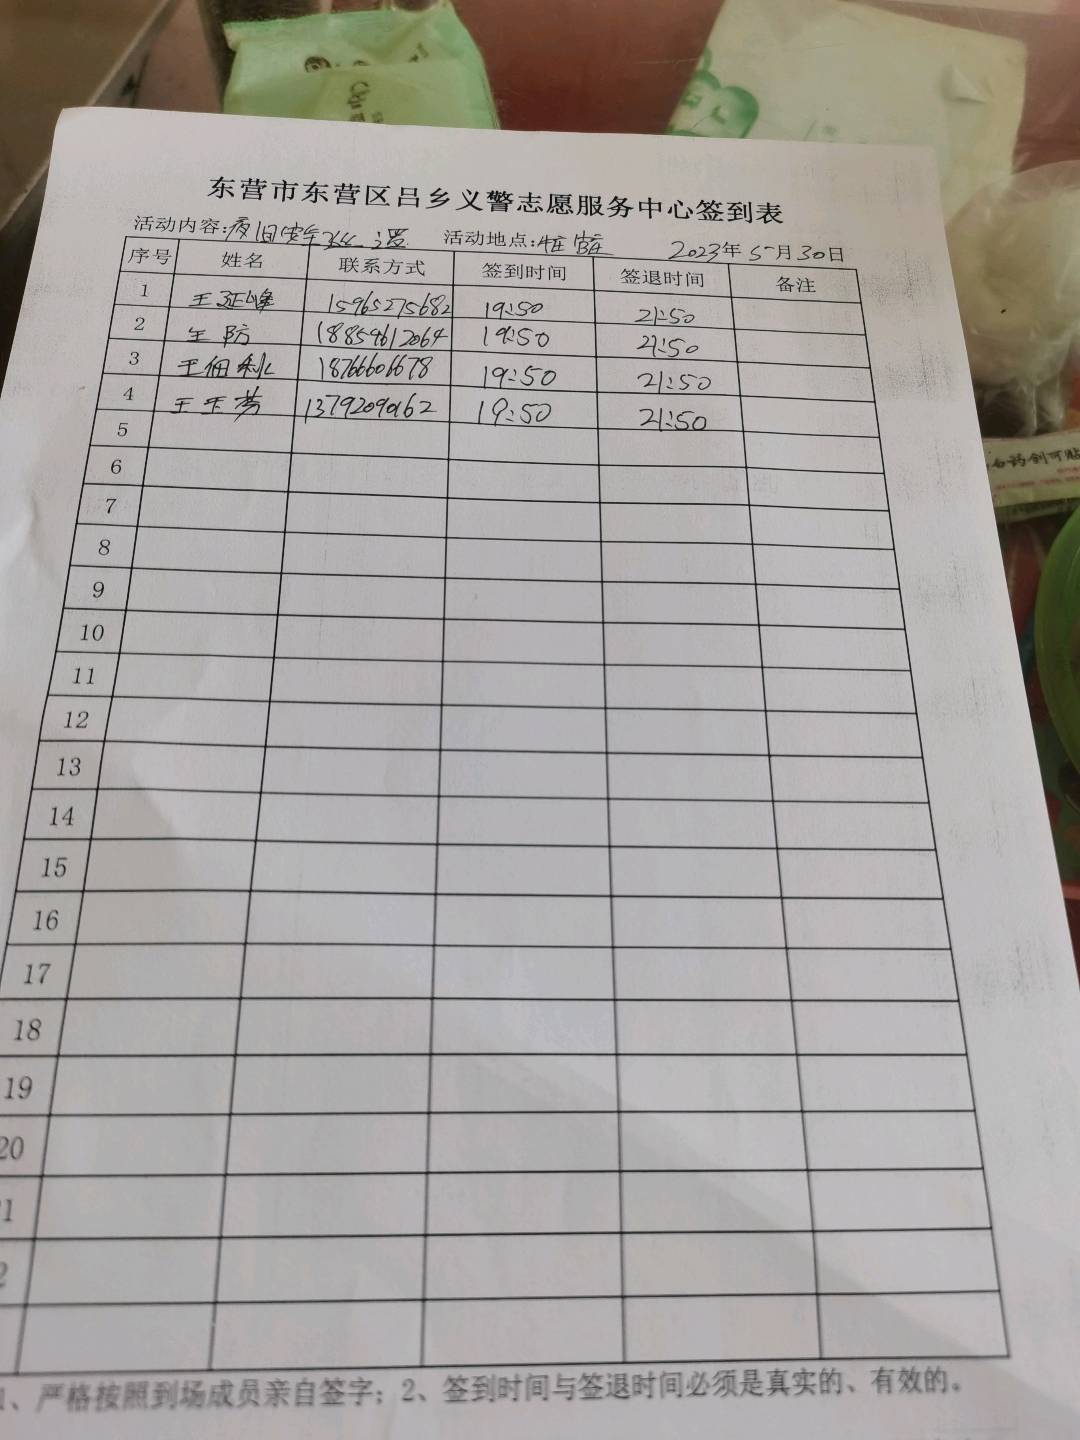 东营市东营区吕乡义警志愿服务中心签到表
活动内容:夜间安全巡逻 活动地点: 2023年5月30日
序号 姓名 联系方式 签到时间 签退时间 备注
1 王延峰 15965275682 19:50 21:50
2 王防 18859612064 19:50 21:50
3 王佃利 18766606678 19:50 21:50
4 王玉芳 13792090162 19:50 21:50
5
6
7
8
9
10
11
12
13
14
15
16
17
18
19
20
1
2
1、严格按照到场成员亲自签字；2、签到时间与签退时间必须是真实的、有效的。